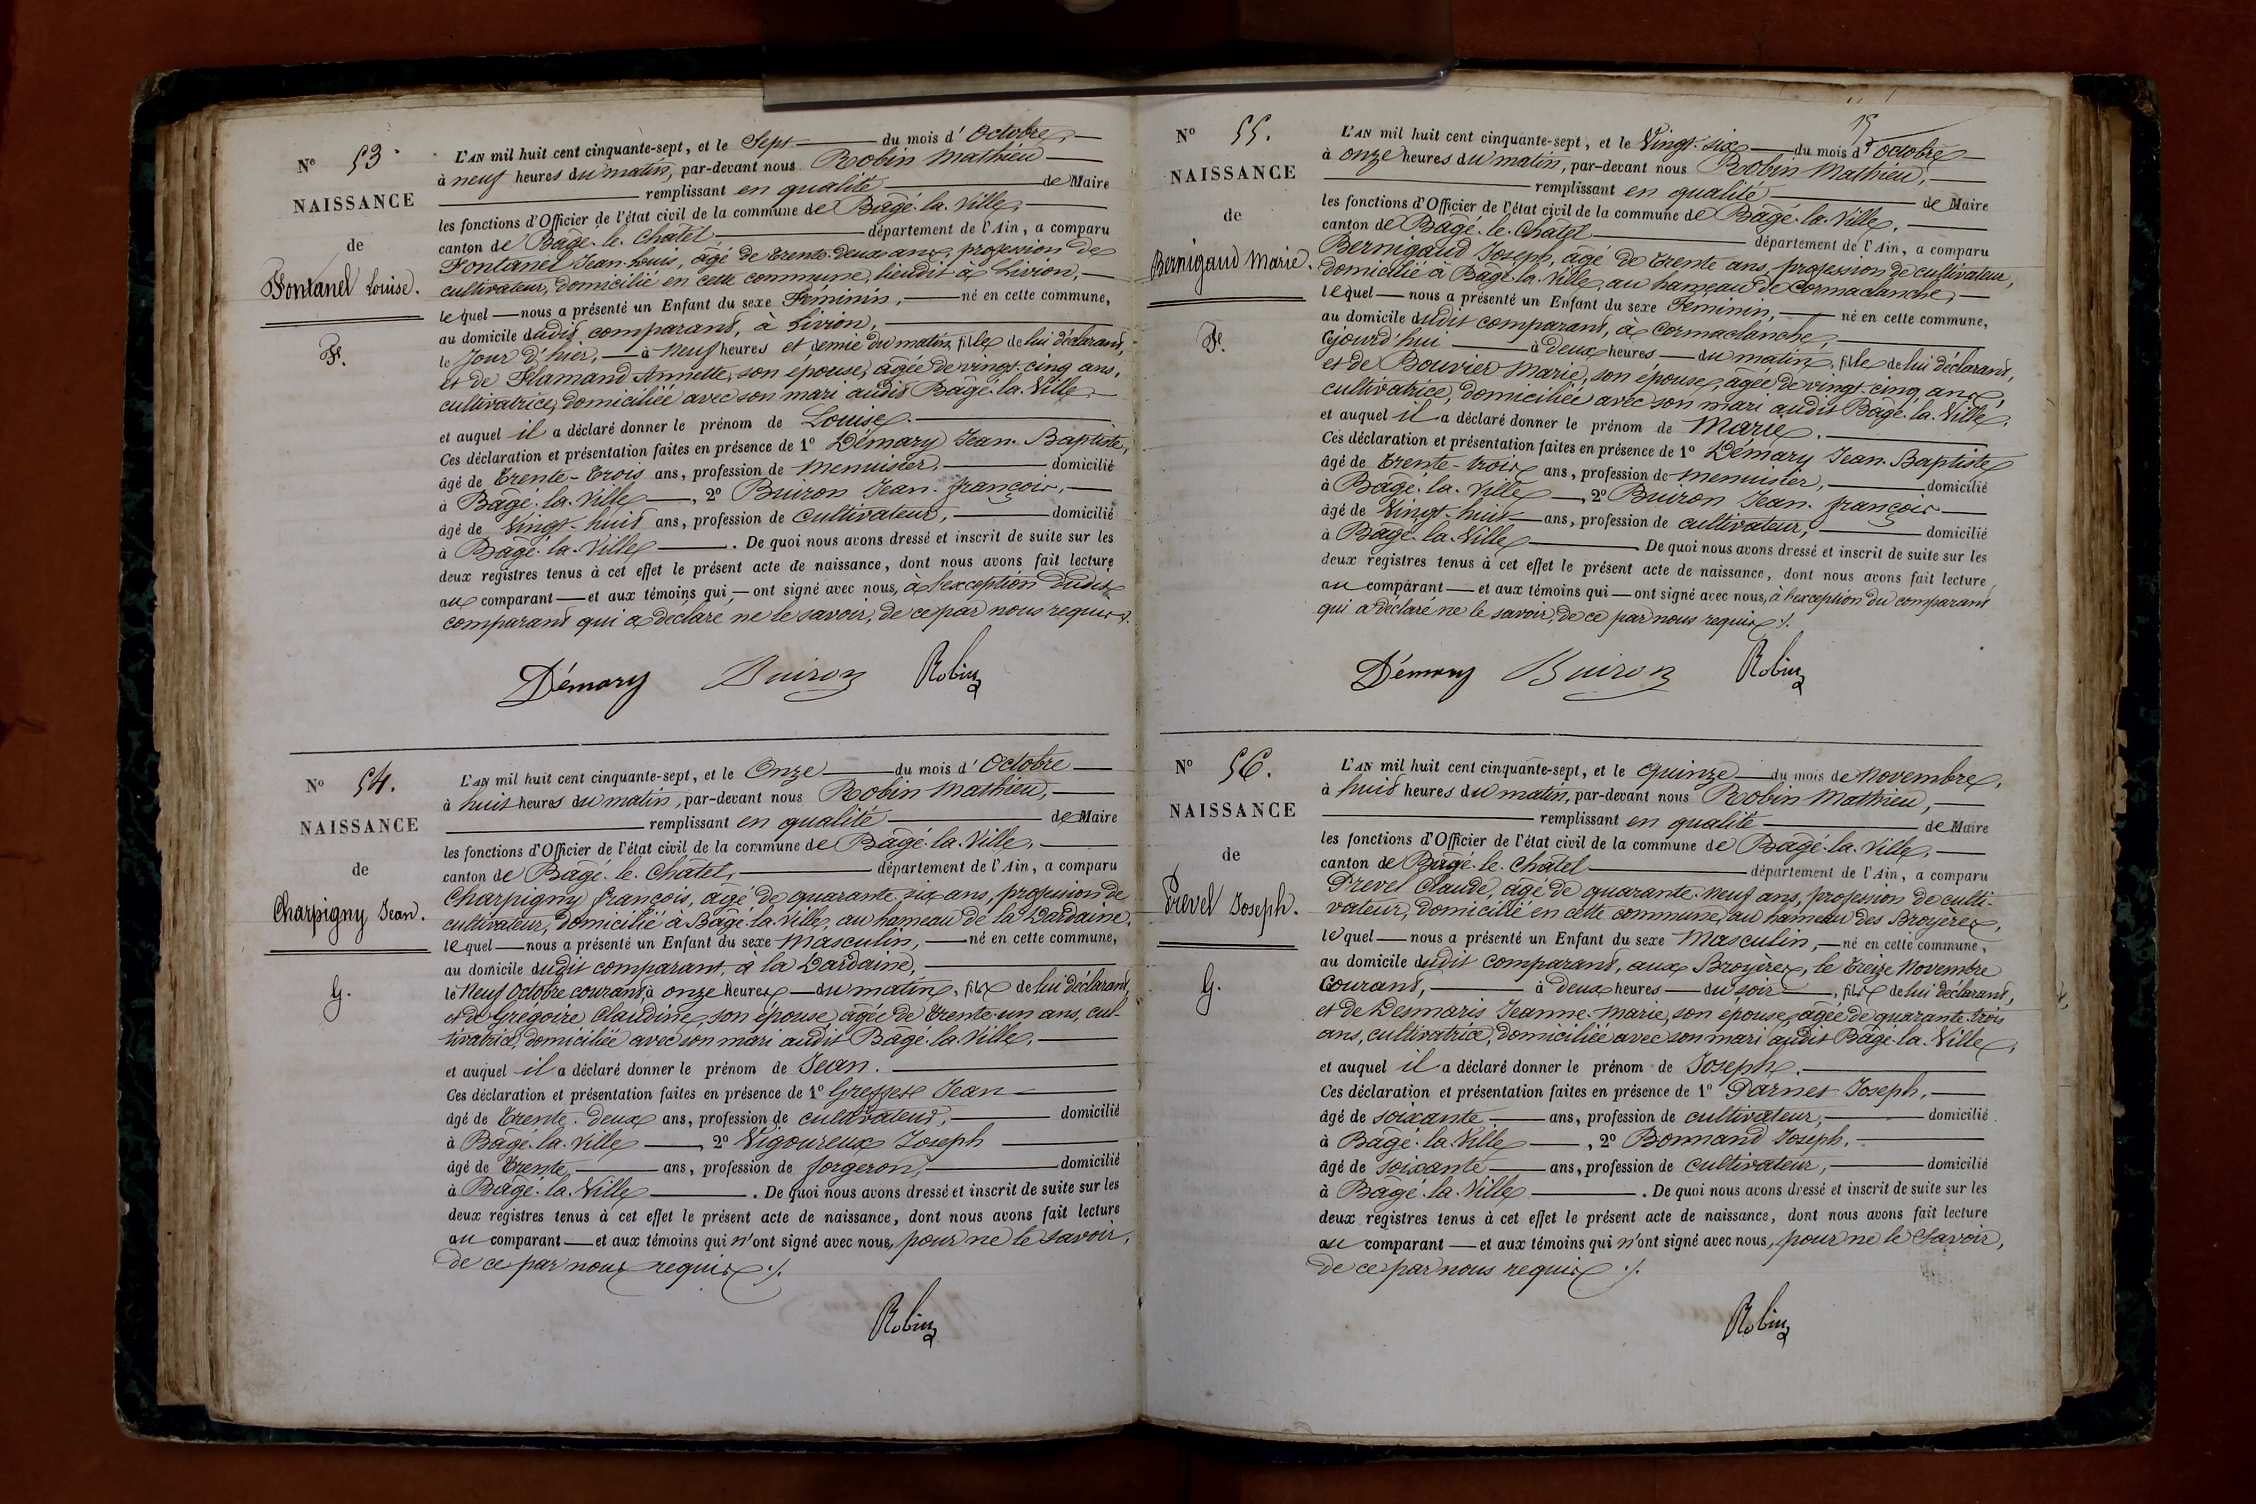 Nº 53.
NAISSANCE
de
Fontanel Louise.
F.
L'AN mil huit cent cinquante-sept, et le Sept du mois d'Octobre,
à neuf heures du matin, par-devant nous Robin Mathieu
remplissant en qualité de Maire
les fonctions d'Officier de l'état civil de la commune de Bâgé-la-Ville,
canton de Bâgé-le-Châtel, département de l'Ain, a comparu
Fontanel Jean-Louis, âgé de trente-deux ans, profession de
cultivateur, domicilié en cette commune, lieudit à Livion,
lequel nous a présenté un Enfant du sexe Feminin, né en cette commune,
au domicile dudit comparant, à Livion,
le Jour d'hier, à Neuf heures et demie du matin, fille de lui déclarant,
et de Flamand Annette, son épouse, âgée de vingt-cinq ans,
cultivatrice, domiciliée avec son mari audit Bâgé-la-Ville,
et auquel il a déclaré donner le prénom de Louise.
Ces déclaration et présentation faites en présence de 1º Démary Jean-Baptiste,
âgé de trente-trois ans, profession de menuisier, domicilié
à Bâgé-la-Ville, 2º Buiron Jean-françois,
âgé de Vingt-huit ans, profession de cultivateur, domicilié
à Bâgé-la-Ville. De quoi nous avons dressé et inscrit de suite sur les
deux registres tenus à cet effet le présent acte de naissance, dont nous avons fait lecture
au comparant et aux témoins qui ont signé avec nous, à l'exception dudit
comparant qui a déclaré ne le savoir, de ce par nous requis ./.
Démary Buiron Robin
Nº 54.
NAISSANCE
de
Charpigny Jean.
G.
L'AN mil huit cent cinquante-sept, et le Onze du mois d'Octobre
à huit heures du matin, par-devant nous Robin Mathieu,
remplissant en qualité de Maire
les fonctions d'Officier de l'état civil de la commune de Bâgé-la-Ville,
canton de Bâgé-le-Châtel, département de l'Ain, a comparu
Charpigny françois, âgé de quarante-six ans, profession de
cultivateur, domicilié à Bâgé-la-Ville, au hameau de la Dardaine,
lequel nous a présenté un Enfant du sexe Masculin, né en cette commune,
au domicile dudit comparant, à la Dardaine,
le Neuf Octobre courant, à onze heures du matin, fils de lui déclarant,
et de Gregoire Claudine, son épouse, âgée de trente-un ans, cul-
tivatrice, domiciliée avec son mari audit Bâgé-la-Ville.
et auquel il a déclaré donner le prénom de Jean.
Ces déclaration et présentation faites en présence de 1º Jean
âgé de trente-deux ans, profession de cultivateur, domicilié
à Bâgé-la-Ville, 2º Vigoureux Joseph
âgé de trente ans, profession de forgeron, domicilié
à Bâgé-la-Ville. De quoi nous avons dressé et inscrit de suite sur les
deux registres tenus à cet effet le présent acte de naissance, dont nous avons fait lecture
au comparant et aux témoins qui n'ont signé avec nous, pour ne le savoir,
de ce par nous requis ./.
Robin
Nº 55.
NAISSANCE
de
Bernigaud Marie.
Fe.
L'AN mil huit cent cinquante-sept, et le Vingt-six du mois d'Octobre
à onze heures du matin, par-devant nous Robin Mathieu,
remplissant en qualité de Maire
les fonctions d'Officier de l'état civil de la commune de Bâgé-la-Ville,
canton de Bâgé-le-Châtel département de l'Ain, a comparu
Bernigaud Joseph, âgé de trente ans, profession de cultivateur,
domicilié à Bâgé-la-Ville, au hameau de Cormaclanche,
lequel nous a présenté un Enfant du sexe Feminin, né en cette commune,
au domicile dudit comparant, à Cormaclanche,
Cejourd'hui à deux heures du matin, fille de lui déclarant,
et de Bouvier Marie, son épouse, âgée de vingt-cinq ans,
cultivatrice, domiciliée avec son mari audit Bâgé-la-Ville,
et auquel il a déclaré donner le prénom de Marie.
Ces déclaration et présentation faites en présence de 1º Démary Jean-Baptiste
âgé de trente-trois ans, profession de menuisier, domicilié
à Bâgé-la-Ville, 2º Buiron Jean-françois
âgé de Vingt-huit ans, profession de cultivateur, domicilié
à Bâgé-la-Ville. De quoi nous avons dressé et inscrit de suite sur les
deux registres tenus à cet effet le présent acte de naissance, dont nous avons fait lecture
au comparant et aux témoins qui ont signé avec nous, à l'exception du comparant
qui a déclaré ne le savoir, de ce par nous requis ./.
Démary Buiron Robin
Nº 56.
NAISSANCE
de
Prevel Joseph.
G.
L'AN mil huit cent cinquante-sept, et le Quinze du mois de Novembre,
à huit heures du matin, par-devant nous Robin Mathieu,
remplissant en qualité de Maire
les fonctions d'Officier de l'état civil de la commune de Bâgé-la-Ville,
canton de Bâgé-le-Châtel département de l'Ain, a comparu
Prevel Claude, âgé de quarante-neuf ans, profession de culti-
vateur, domicilié en cette commune, au hameau des Broyères,
lequel nous a présenté un Enfant du sexe Masculin, né en cette commune,
au domicile dudit comparant, aux Broyères, le treize Novembre
Courant, à deux heures du soir, fils de lui déclarant,
et de Desmaris Jeanne-Marie, son épouse, âgée de quarante-trois
ans, cultivatrice, domiciliée avec son mari audit Bâgé-la-Ville,
et auquel il a déclaré donner le prénom de Joseph.
Ces déclaration et présentation faites en présence de 1º Darnet Joseph,
âgé de soixante ans, profession de cultivateur, domicilié
à Bâgé-la-Ville, 2º Bonnand Joseph,
âgé de soixante ans, profession de cultivateur, domicilié
à Bâgé-la-Ville. De quoi nous avons dressé et inscrit de suite sur les
deux registres tenus à cet effet le présent acte de naissance, dont nous avons fait lecture
au comparant et aux témoins qui n'ont signé avec nous, pour ne le savoir,
de ce par nous requis ./.
Robin